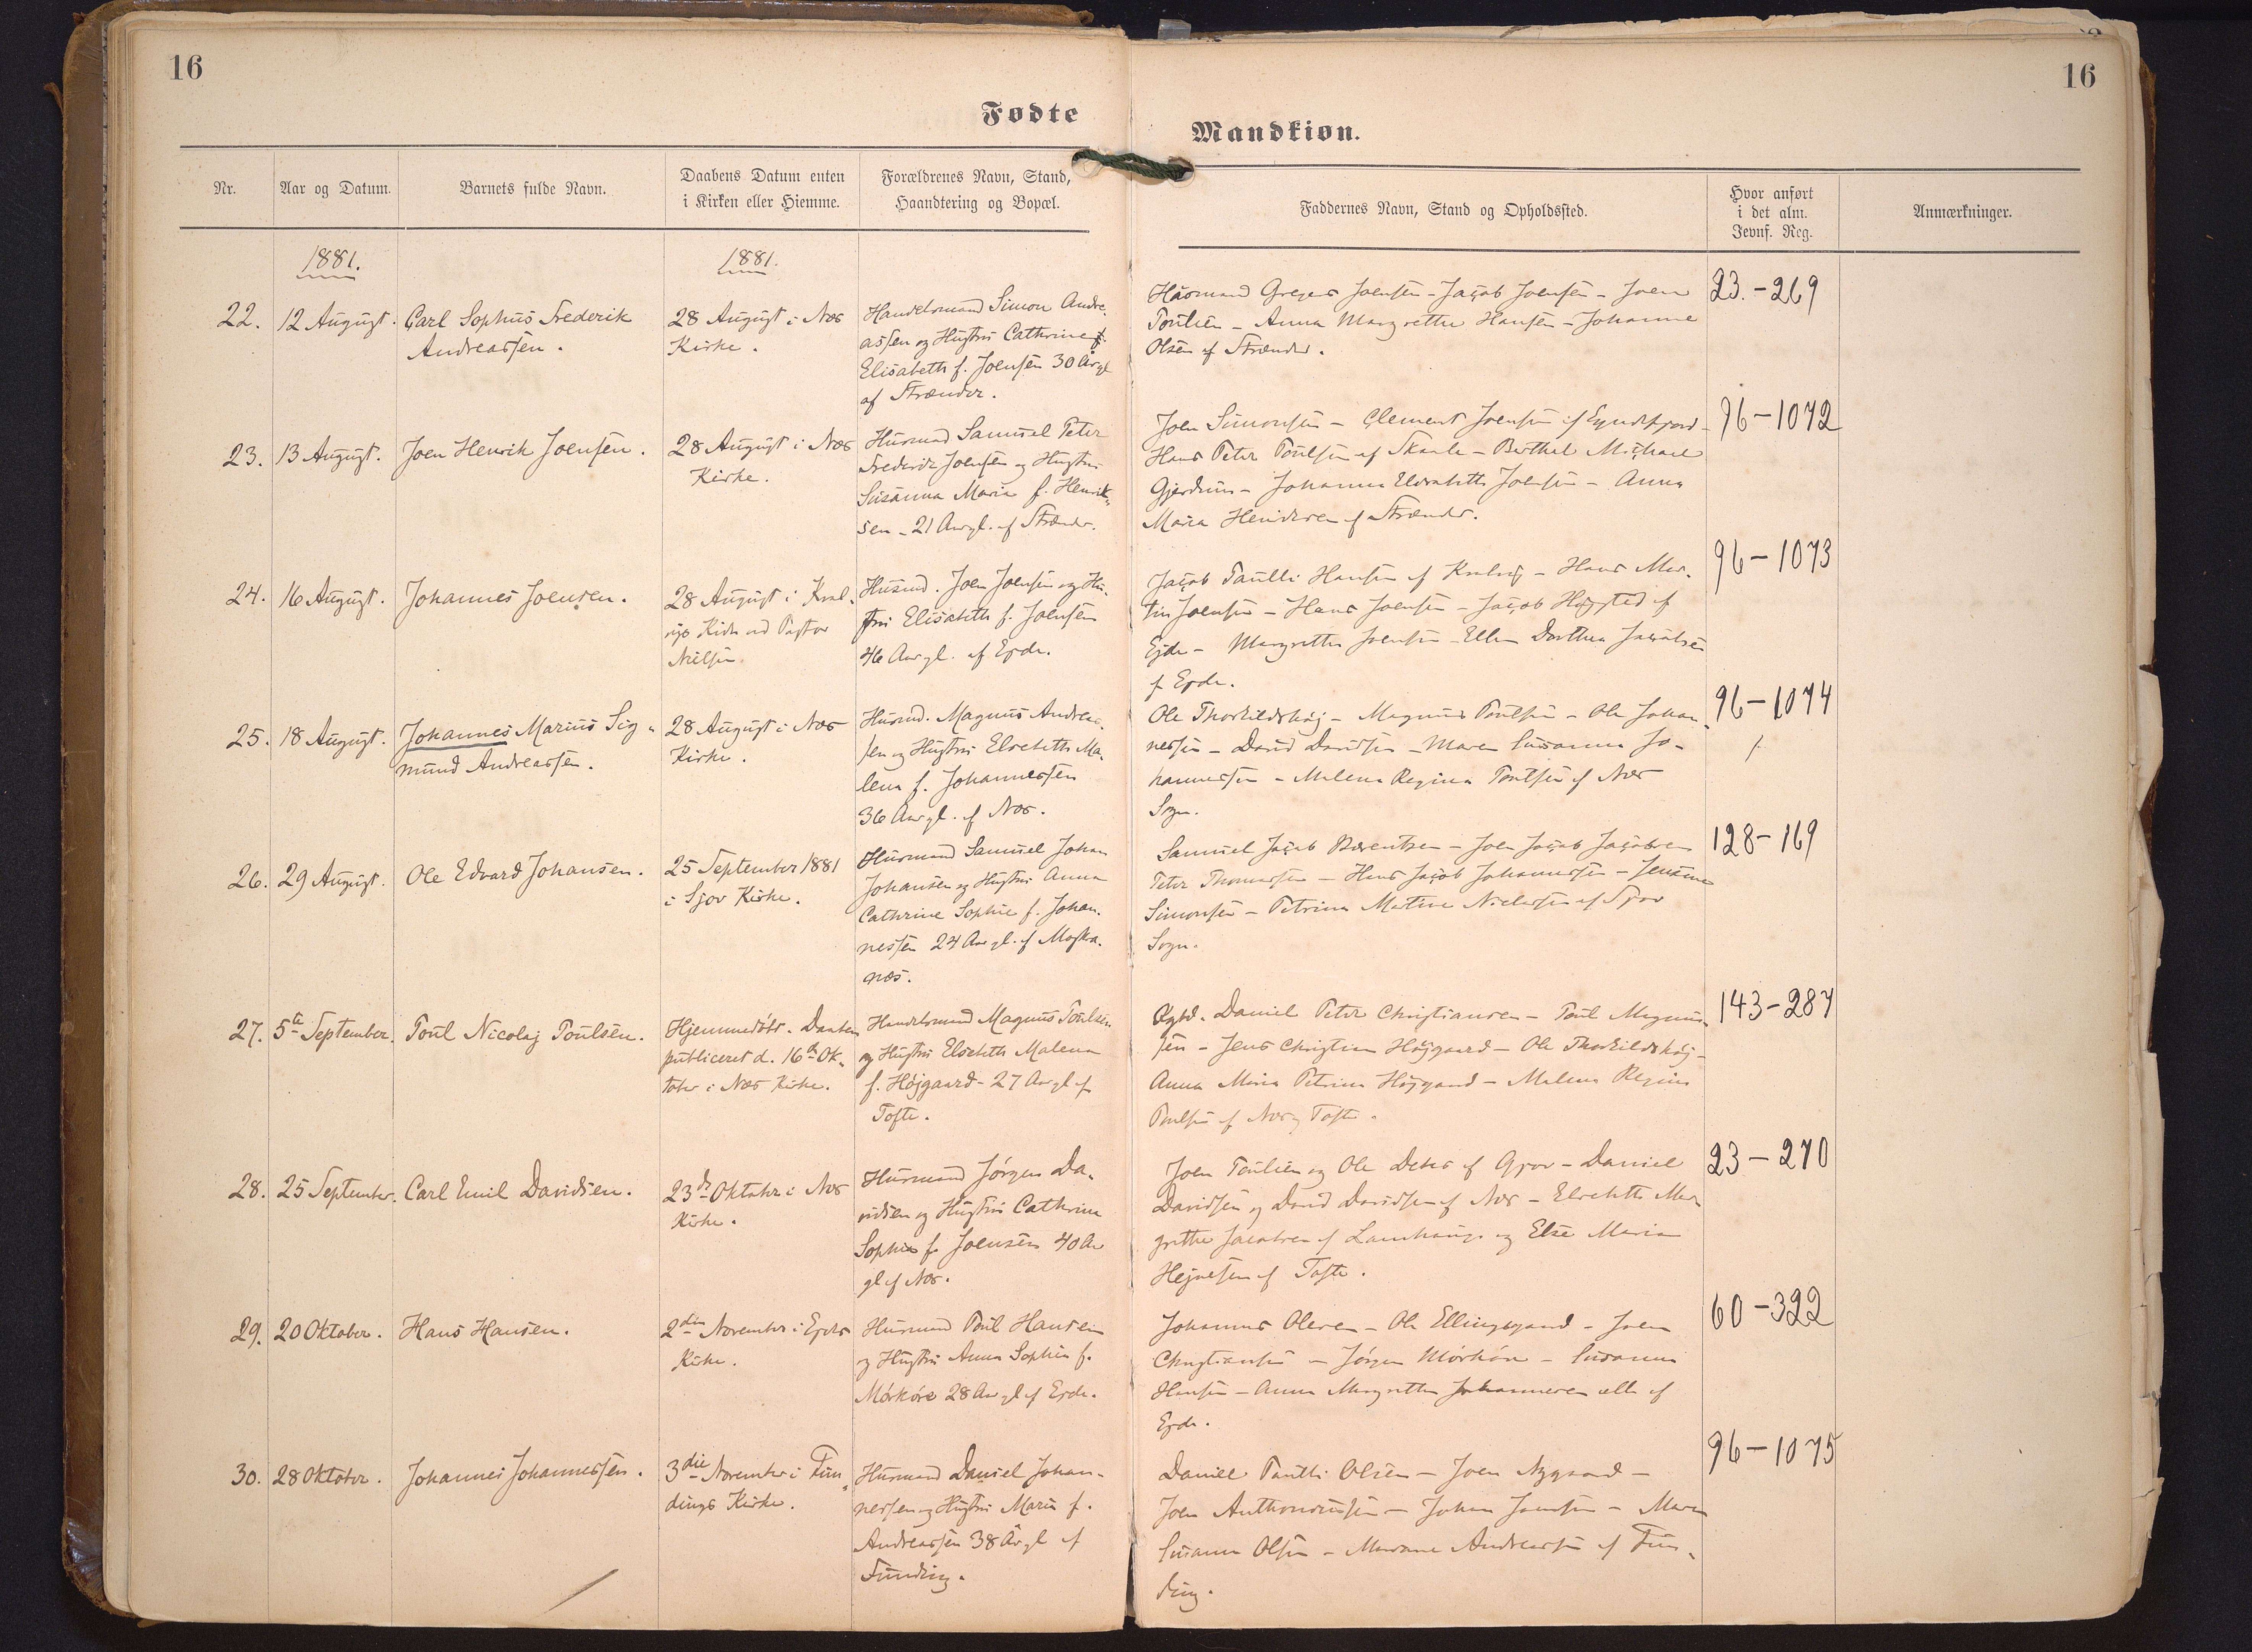 16
16
Fødte
Mandkiøn.
Nr.
Aar og Datum.
Barnets fulde Navn.
Daabens Datum enten
i Kirken eller Hiemme.
Forældrenes Navn, Stand,
Haandtering og Bopæl.
Faddernes Navn, Stand og Opholdssted.
Hvor anført
i det alm.
Jevnf. Reg.
Anmærkninger.
1881.
1881.
22.
12 August.
Carl Sophus Frederik
Andreassen.
28 August i Næs
Kirke.
Handelsmand Simon Andre-
assen og Hustru Cathrine
Elisabeth f. Joensen 30 Aar gl
af Strænder.
Joensen - Jacob Joensen - Joen
Poulsen - Anna Margrethe Hansen - Johanne
Olsen af Strænder.
23.-269
23.
13 August.
Joen Henrik Joensen.
28 August i Næs
Kirke.
Husmand Samuel Peter
Frederik Joensen og Hustru
Susanna Maria f. Henrik-
sen - 21 Aar gl. af Strænder.
Joen Simonsen - Clement Joensen af
Hans Peter Poulsen af Skaale - Berthel Michael
Gjerdum - Johanna Elisabeth Joensen - Anna
Maria Henriksen af Strænder.
96-1072
24.
16 August.
Johannes Joensen.
28 August i Kval-
vigs Kirke ved Pastor
Nielsen.
Husmd. Joen Joensen og Hu-
stru Elisabeth f. Joensen
46 Aar gl. af Ejde.
Jacob Poulli Hansen af Kvalvig - Hans Mar-
tin Joensen - Hans Joensen - Jacob af
Ejde - Margrethe Joensen - Ellen Dorthea Jacobsen
f Ejde.
96-1073
25.
18 August.
Johannes Marius Sig-
mund Andreassen.
28 August i Næs
Kirke.
Husmd. Magnus Andreas-
sen og Hustru Elsebeth Ma-
lena f. Johannessen
36 Aar gl. af Næs.
Ole Thorkildshøj - Magnus Poulsen - Ole Johan-
nessen - David Davidsen - Maren Susanna Jo-
hannessen - Malena Regina Poulsen af Næs
Sogn.
96-1074
26.
29 August.
Ole Edvard Johansen.
25 September 1881
i Sjov Kirke.
Husmand Samuel Johan
Johansen og Hustru Anna
Cathrine Sophie f. Johan-
nessen 24 Aar gl. af Moska-
næs.
Samuel Jacob Berentsen - Joen Jacob Jacobsen
Peter Thomassen - Hans Jacob Johannessen - Jensine
Simonsen - Petrina Martine Nielsen af Sjov
Sogn.
128-169
27.
5te September.
Poul Nicolaj Poulsen.
Hjemmedøbt. Daaben
publiceret d. 16de Ok-
tober i Næs Kirke.
Handelsmand Magnus Poulsen
og Hustru Elsebeth Malena
f. Højgaard - 27 Aar gl af
Tofte.
Daniel Peter Christiansen - Poul Magnus-
sen - Jens Christian Højgaard - Ole Thorkildshøj -
Anna Maria Petrina Højgaard - Malena Regina
Poulsen af Næs og Tofte.
143-287
28.
25 September.
Carl Emil Davidsen.
23de Oktober i Næs
Kirke.
Husmand Jørgen Da-
vidsen og Hustru Cathrina
Sophia f. Joensen 40 Aar
gl af Næs.
Joen Poulsen og Ole Debes af Gjov - Daniel
Davidsen og David Davidsen af Næs - Elsebeth Mar-
grethe Jacobsen af Lamhauge og Else Maria
Hejnesen af Tofte.
23-270
29.
20 Oktober.
Hans Hansen.
2den November i Ejde
Kirke.
Husmand Poul Hansen
og Hustru Anna Sophie f.
Mørkøre 28 Aar gl af Ejde.
Johannes Olsen - Ole Ellingsgaard - Joen
Christiansen - Jørgen Mørkøre - Susanna
Hansen - Anna Margrethe Johannesen alle af
Ejde.
60-322
30.
28 Oktober.
Johannes Johannessen.
3die November i Fun-
dings Kirke.
Husmand Daniel Johan-
nessen og Hustru Maria f.
Andreassen 38 Aar gl af
Funding.
Daniel Poulli Olsen - Joen Nygaard -
Joen Anthoniussen - Johan Joensen - Maren
Susanna Olsen - Andreassen af Fun-
ding.
96-1075